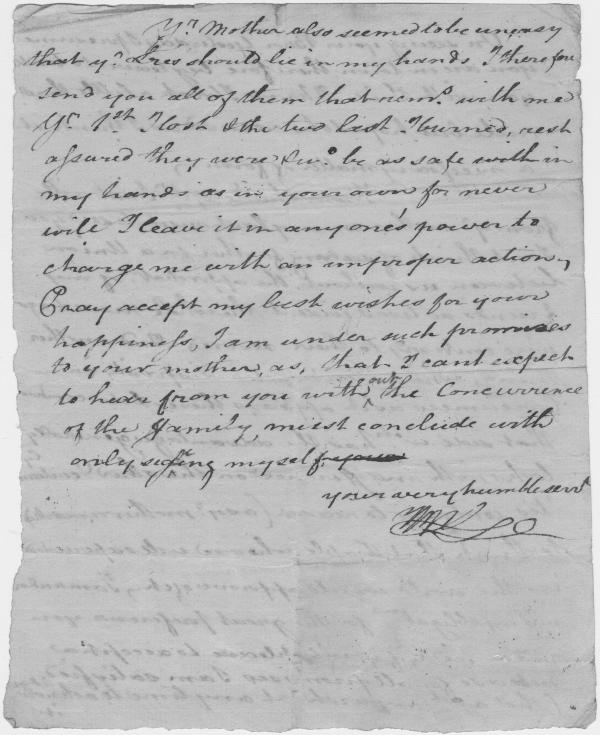 Yr. Mother also seemed to be uneasy
that yr. Lres should lie in my hands I therefore
send you all of them that remd. with me
Yr. 1st. I lost & the two last I burned, rest
assured they were & wd. be as safe with in
my hands as in your own for never
will I leave it in any one's power to
charge me with an improper action,
Pray accept my best wishes for your
happiness, I am under such promises
to your mother, as, that I cant expect
to hear from you without the Concurrence
of the family, must conclude with
only my self,
your very humble servt.